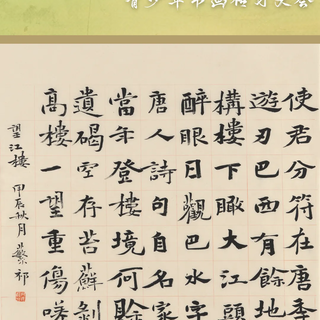 使君分符在唐季
遊刃巴西有餘地
構樓下瞰大江頭
醉眼日觀巴水字
唐人詩句自名家
當年登樓境何賒
遺碣空存苔蘚剝
高樓一望重傷嗟
望江樓 甲辰秋月